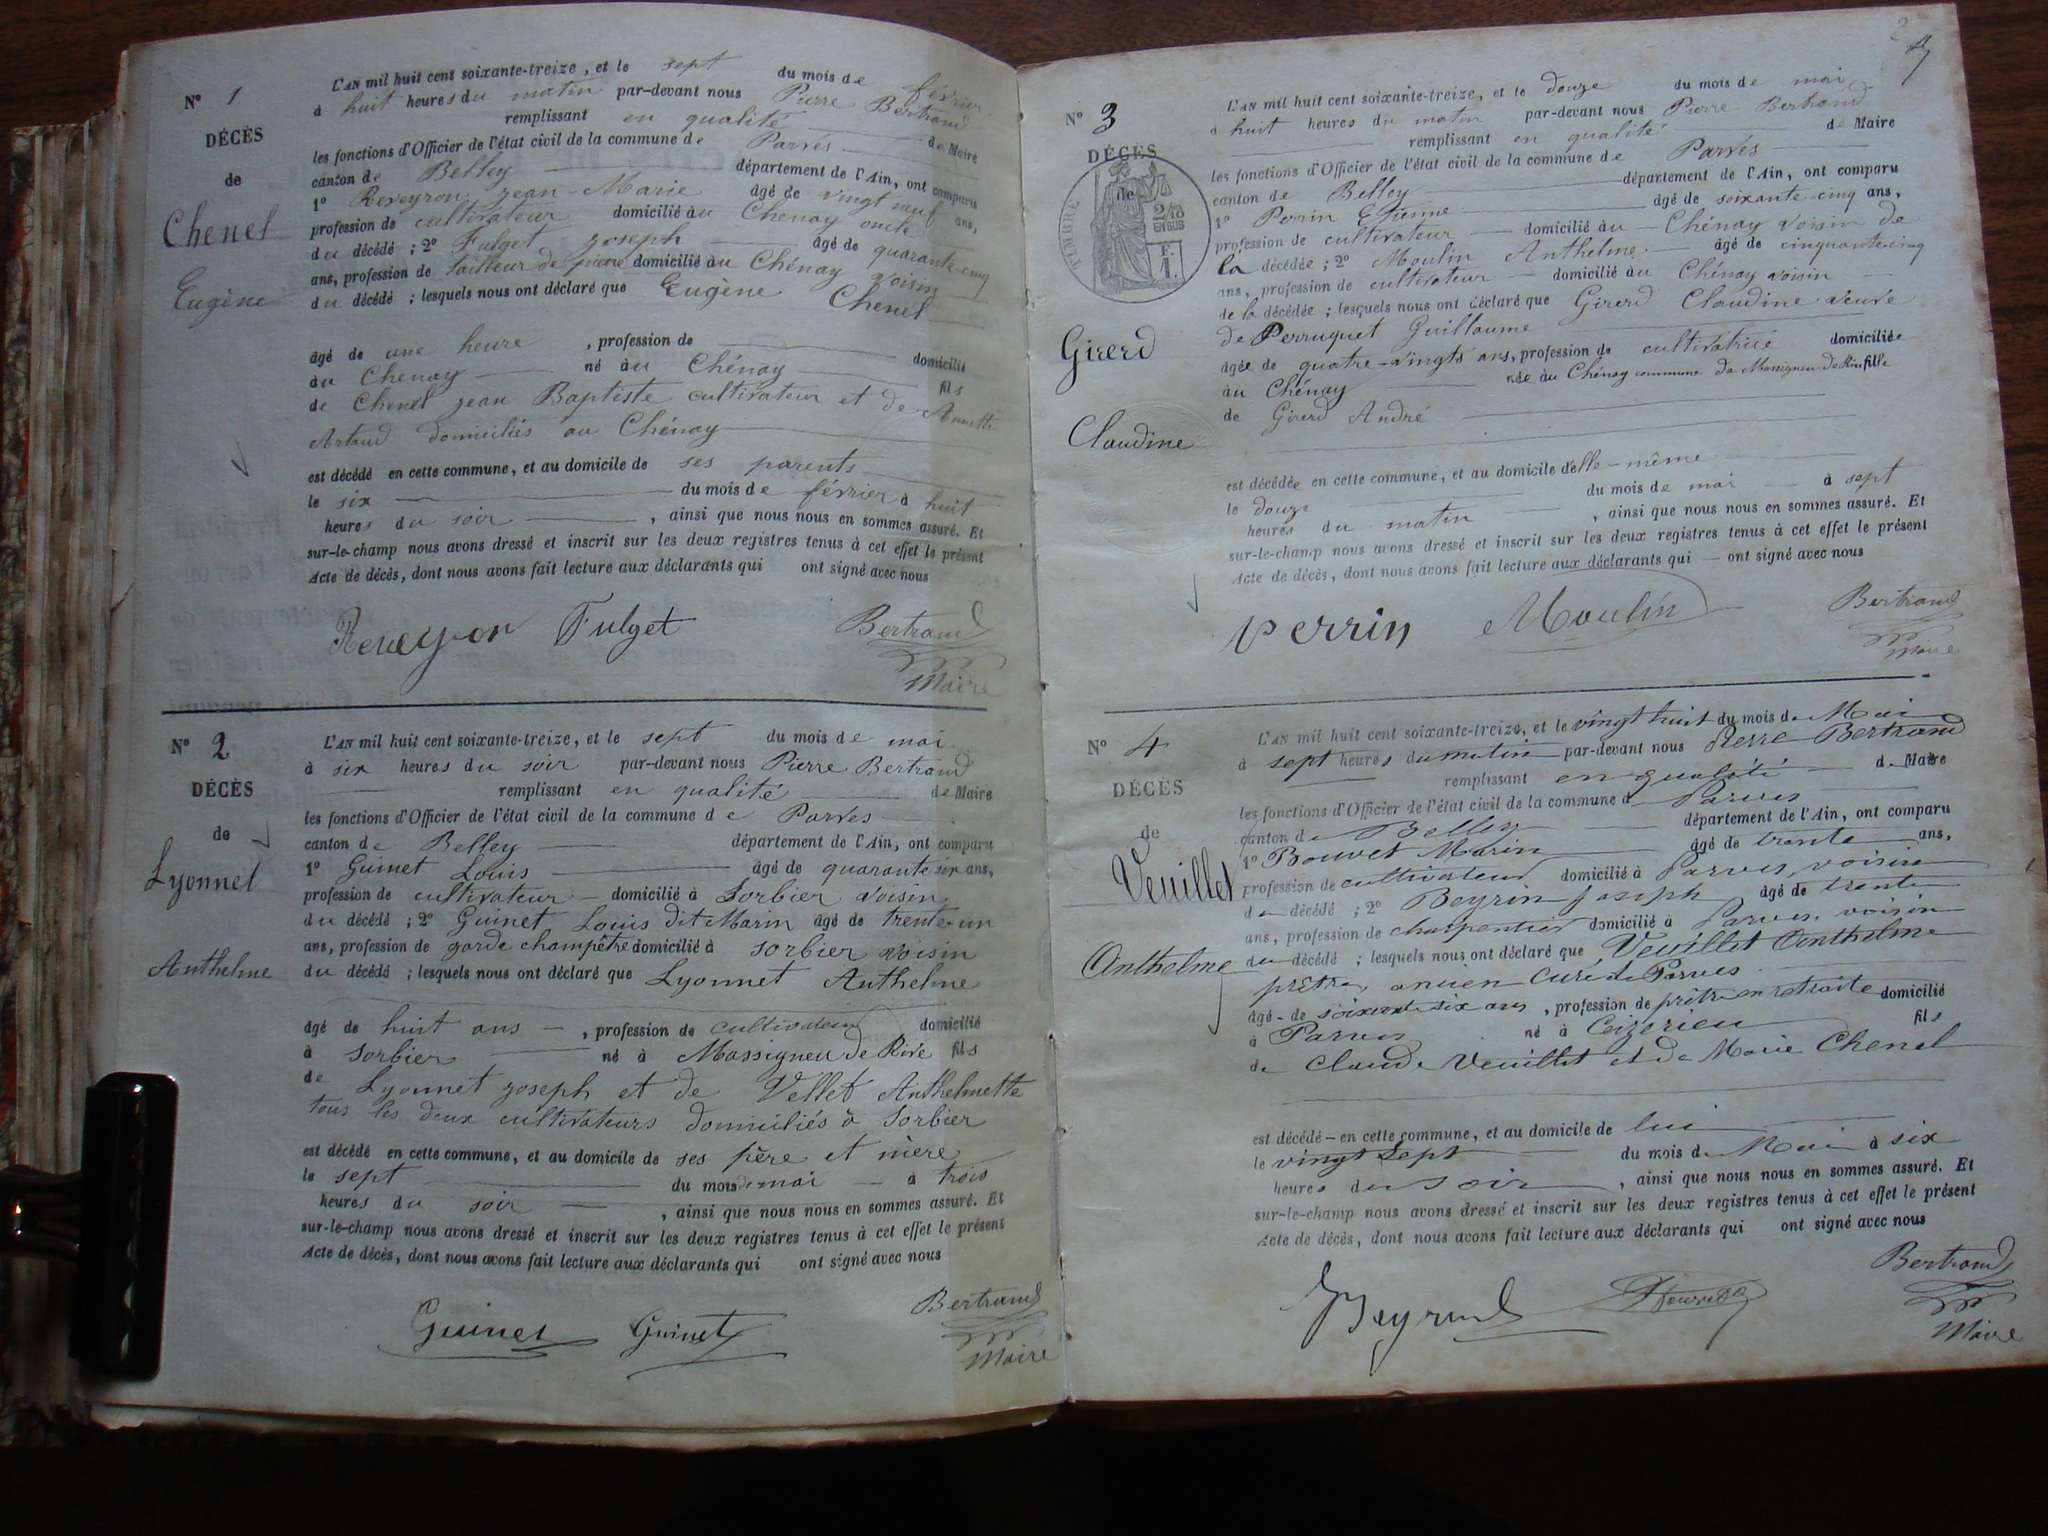 N° 1
DÉCÈS
de
Chenel
Eugène
L'AN mil huit cent soixante-treize, et le sept du mois de février
à huit heures du matin par-devant nous Pierre Bertrand
remplissant en qualité de Maire
les fonctions d'Officier de l'état civil de la commune de Parvés
canton de Belley département de l'Ain, ont comparu
1° Reveyron Jean-Marie âgé de vingt neuf ans,
profession de cultivateur domicilié au Chenay oncle
du décédé ; 2° Fulget Joseph âgé de quarante-cinq
ans, profession de tailleur de pierre domicilié au Chénay voisin
du décédé ; lesquels nous ont déclaré que Eugène Chenel
âgé de une heure , profession de domicilié
au Chenay né au Chénay fils
de Chenel Jean Baptiste cultivateur et de Annette
Artaud domiciliés au Chénay
est décédé en cette commune, et au domicile de ses parents
le six du mois de février à huit
heures du soir , ainsi que nous nous en sommes assuré. Et
sur-le-champ nous avons dressé et inscrit sur les deux registres tenus à cet effet le présent
Acte de décès, dont nous avons fait lecture aux déclarants qui ont signé avec nous
Reveyron Fulget Bertrand
Maire
N° 2
DÉCÈS
de
Lyonnel
Anthelme
L'AN mil huit cent soixante-treize, et le sept du mois de mai
à six heures du soir par-devant nous Pierre Bertrand
remplissant en qualité de Maire
les fonctions d'Officier de l'état civil de la commune de Parvés
canton de Belley département de l'Ain, ont comparu
1° Guinet Louis âgé de quarante six ans,
profession de cultivateur domicilié à Sorbier voisin
du décédé ; 2° Guinet Louis dit Marin âgé de trente-un
ans, profession de garde champêtre domicilié à Sorbier voisin
du décédé ; lesquels nous ont déclaré que Lyonnet Anthelme
âgé de huit ans , profession de cultivateur domicilié
à Sorbier né à Massigneu de Rive fils
de Lyonnet Joseph et de Vellet Anthelmette
tous les deux cultivateurs domiciliés à Sorbier
est décédé en cette commune, et au domicile de ses père et mère
le sept du mois de mai à trois
heures du soir , ainsi que nous nous en sommes assuré. Et
sur-le-champ nous avons dressé et inscrit sur les deux registres tenus à cet effet le présent
Acte de décès, dont nous avons fait lecture aux déclarants qui ont signé avec nous
Guinet Guinet Bertrand
Maire
N° 3
DÉCÈS
de
TIMBRE
2/10
EN SUS
F.
1.
Girerd
Claudine
L'AN mil huit cent soixante-treize, et le douze du mois de mai
à huit heures du matin par-devant nous Pierre Bertrand
remplissant en qualité de Maire
les fonctions d'Officier de l'état civil de la commune de Parvés
canton de Belley département de l'Ain, ont comparu
1° Perrin Etienne âgé de soixante-cinq ans,
profession de cultivateur domicilié au Chénay voisin de
la décédée ; 2° Moulin Anthelme âgé de cinquante-cinq
ans, profession de cultivateur domicilié au Chénay voisin
de la décédée ; lesquels nous ont déclaré que Girerd Claudine veuve
de Perruquet Guillaume
âgée de quatre-vingts ans, profession de cultivatrice domiciliée
au Chénay née au Chénay commune de Massigneu-de-Rive fille
de Girerd André
est décédée en cette commune, et au domicile d'elle-même
le douze du mois de mai à sept
heures du matin , ainsi que nous nous en sommes assuré. Et
sur-le-champ nous avons dressé et inscrit sur les deux registres tenus à cet effet le présent
Acte de décès, dont nous avons fait lecture aux déclarants qui ont signé avec nous
Perrin Moulin Bertrand
Maire
N° 4
DÉCÈS
de
Veuillet
Anthelme
L'AN mil huit cent soixante-treize, et le vingt huit du mois de Mai
à sept heures du matin par-devant nous Pierre Bertrand
remplissant en qualité de Maire
les fonctions d'Officier de l'état civil de la commune de Parves
canton de Belley département de l'Ain, ont comparu
1° Bouvet Marin âgé de trente ans,
profession de cultivateur domicilié à Parves, voisin
du décédé ; 2° Beyrin Joseph âgé de trente
ans, profession de charpentier domicilié à Parves, voisin
du décédé ; lesquels nous ont déclaré que Veuillet Anthelme
prêtre, ancien curé de Parves
âgé de soixante six ans , profession de prêtre en retraite domicilié
à Parves né à Ceizerieu fils
de Claude Veuillet et de Marie Chenel
est décédé en cette commune, et au domicile de lui
le vingt sept du mois de Mai à six
heures du soir , ainsi que nous nous en sommes assuré. Et
sur-le-champ nous avons dressé et inscrit sur les deux registres tenus à cet effet le présent
Acte de décès, dont nous avons fait lecture aux déclarants qui ont signé avec nous
Bertrand
Maire